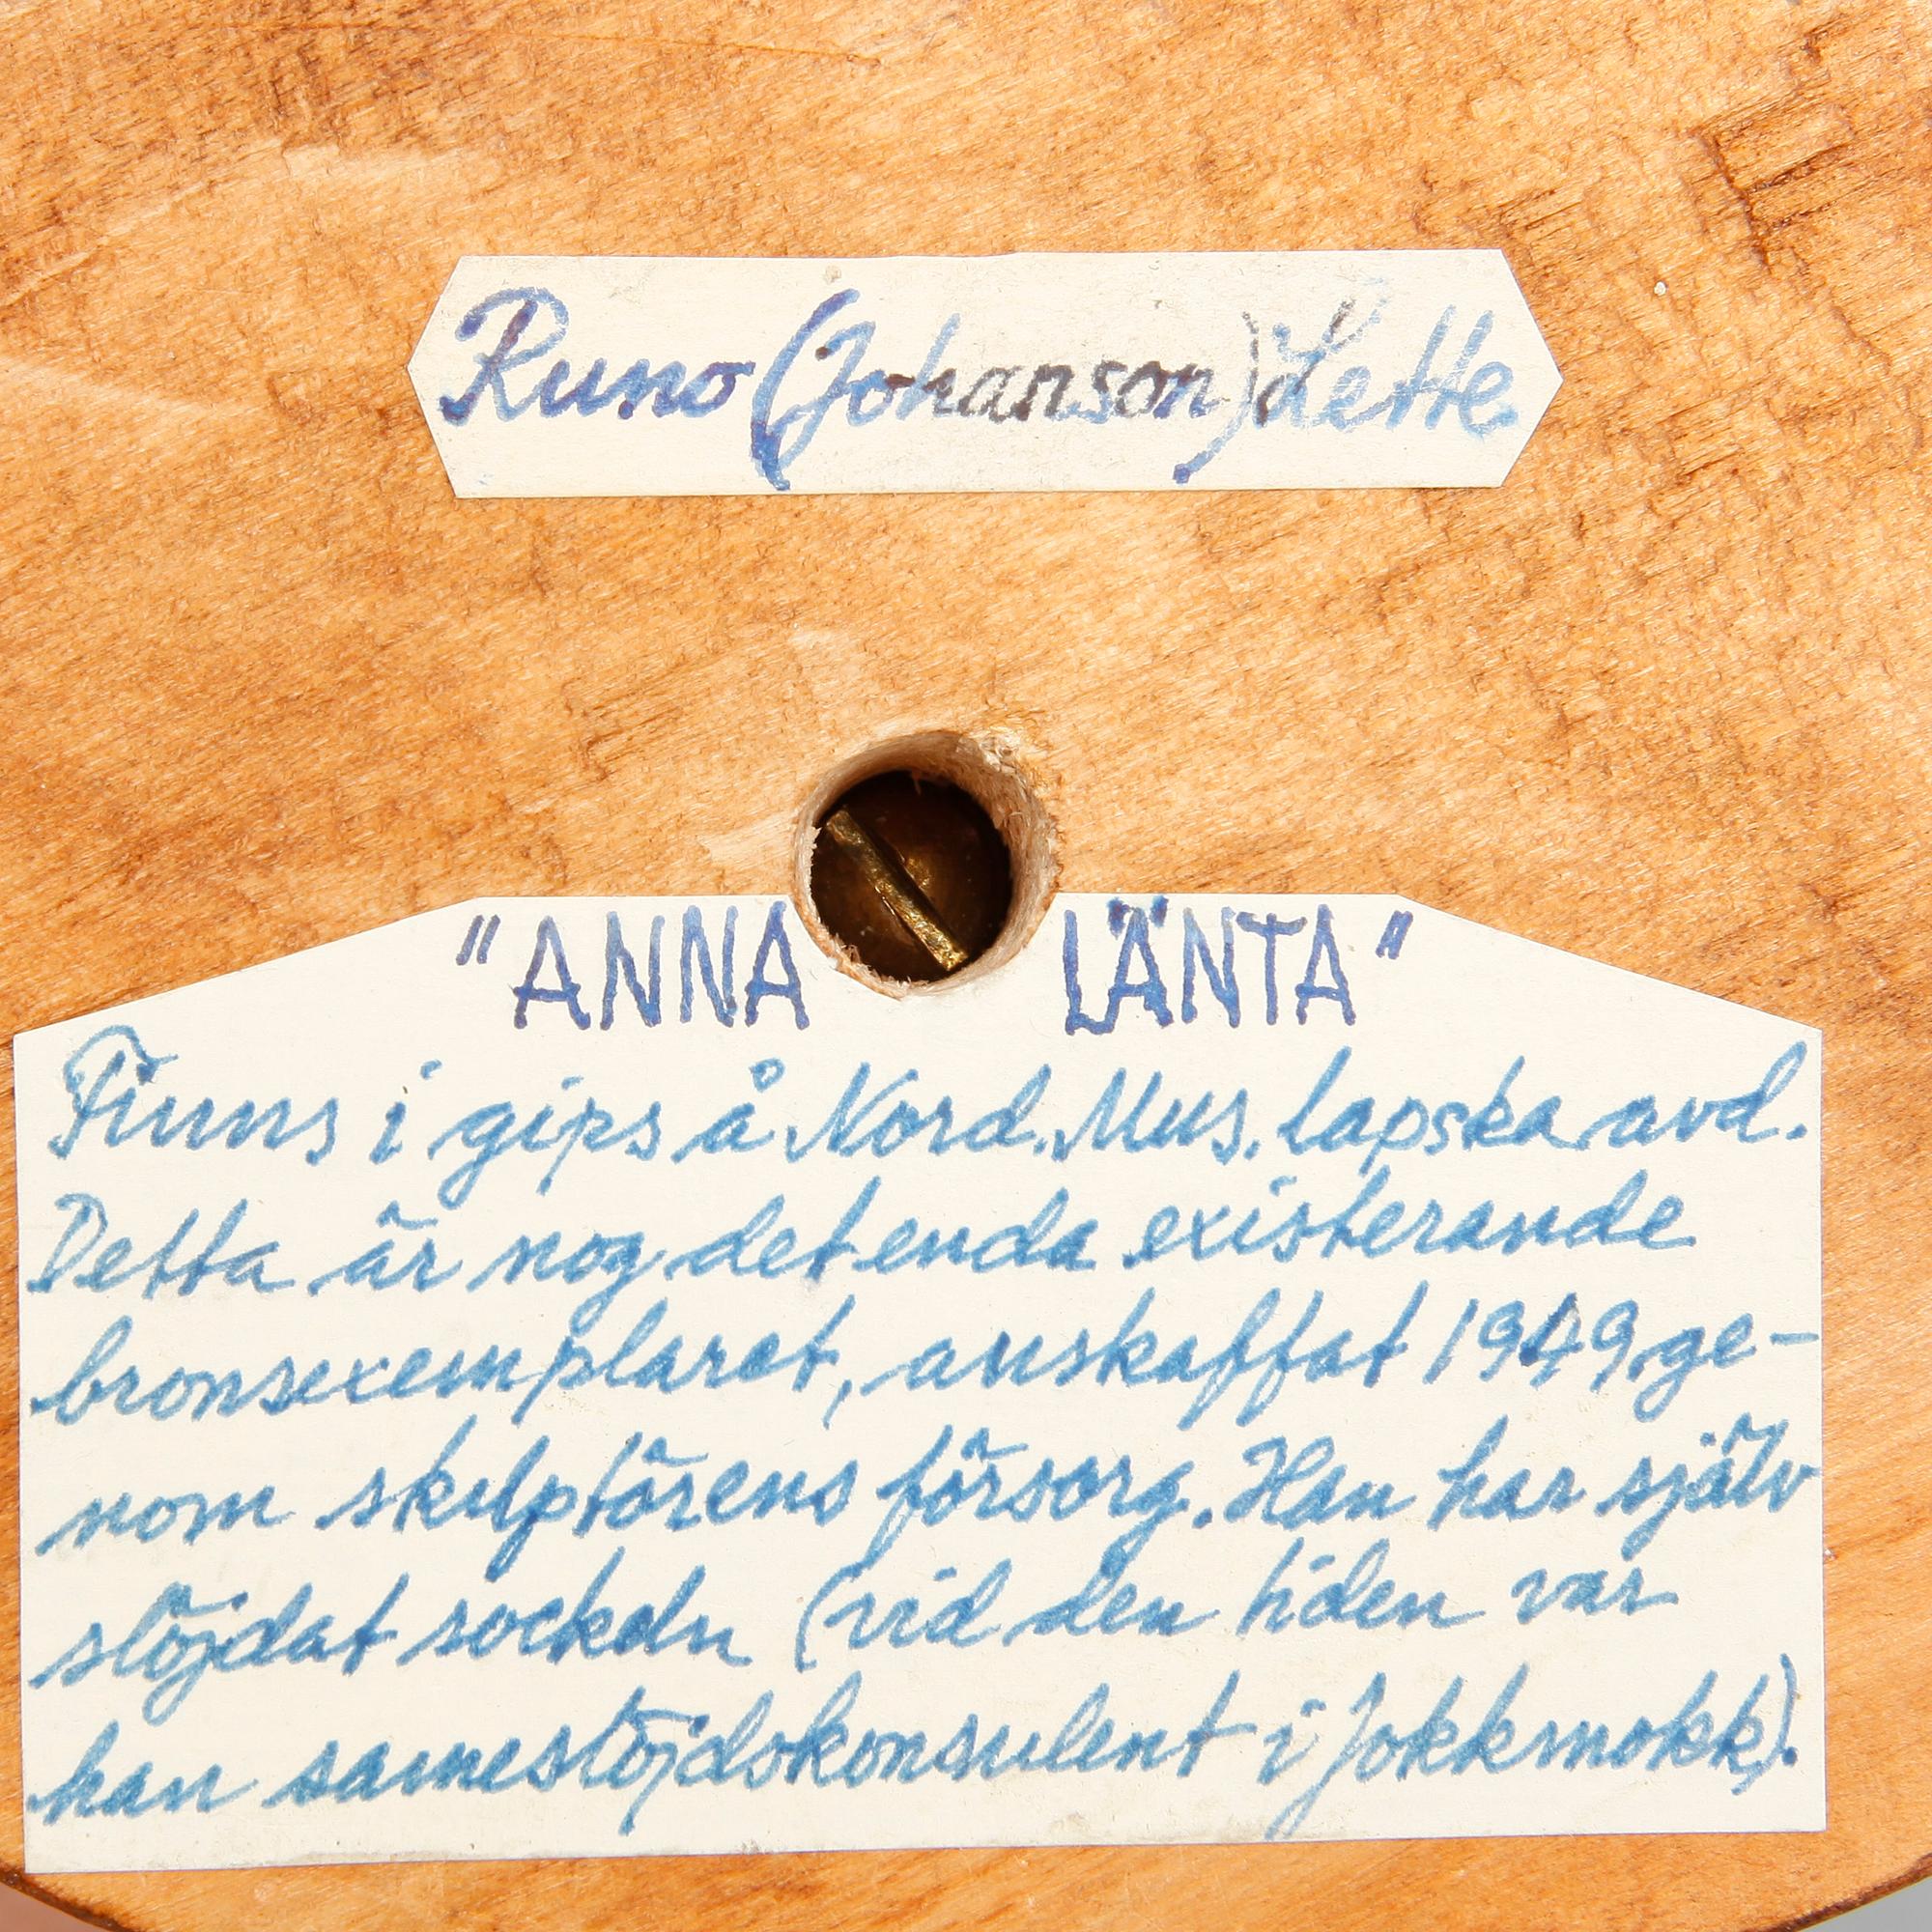 Runo (Johanson) Lette.
"ANNA LÄNTA"
Finns i gips å Nord. Mus. lapska avd.
Detta är nog det enda existerande
bronsexemplaret, anskaffat 1949 ge-
nom skulptörens försorg. Han har själv
slöjdat sockeln (vid den tiden var
han sameslöjdskonsulent i Jokkmokk).